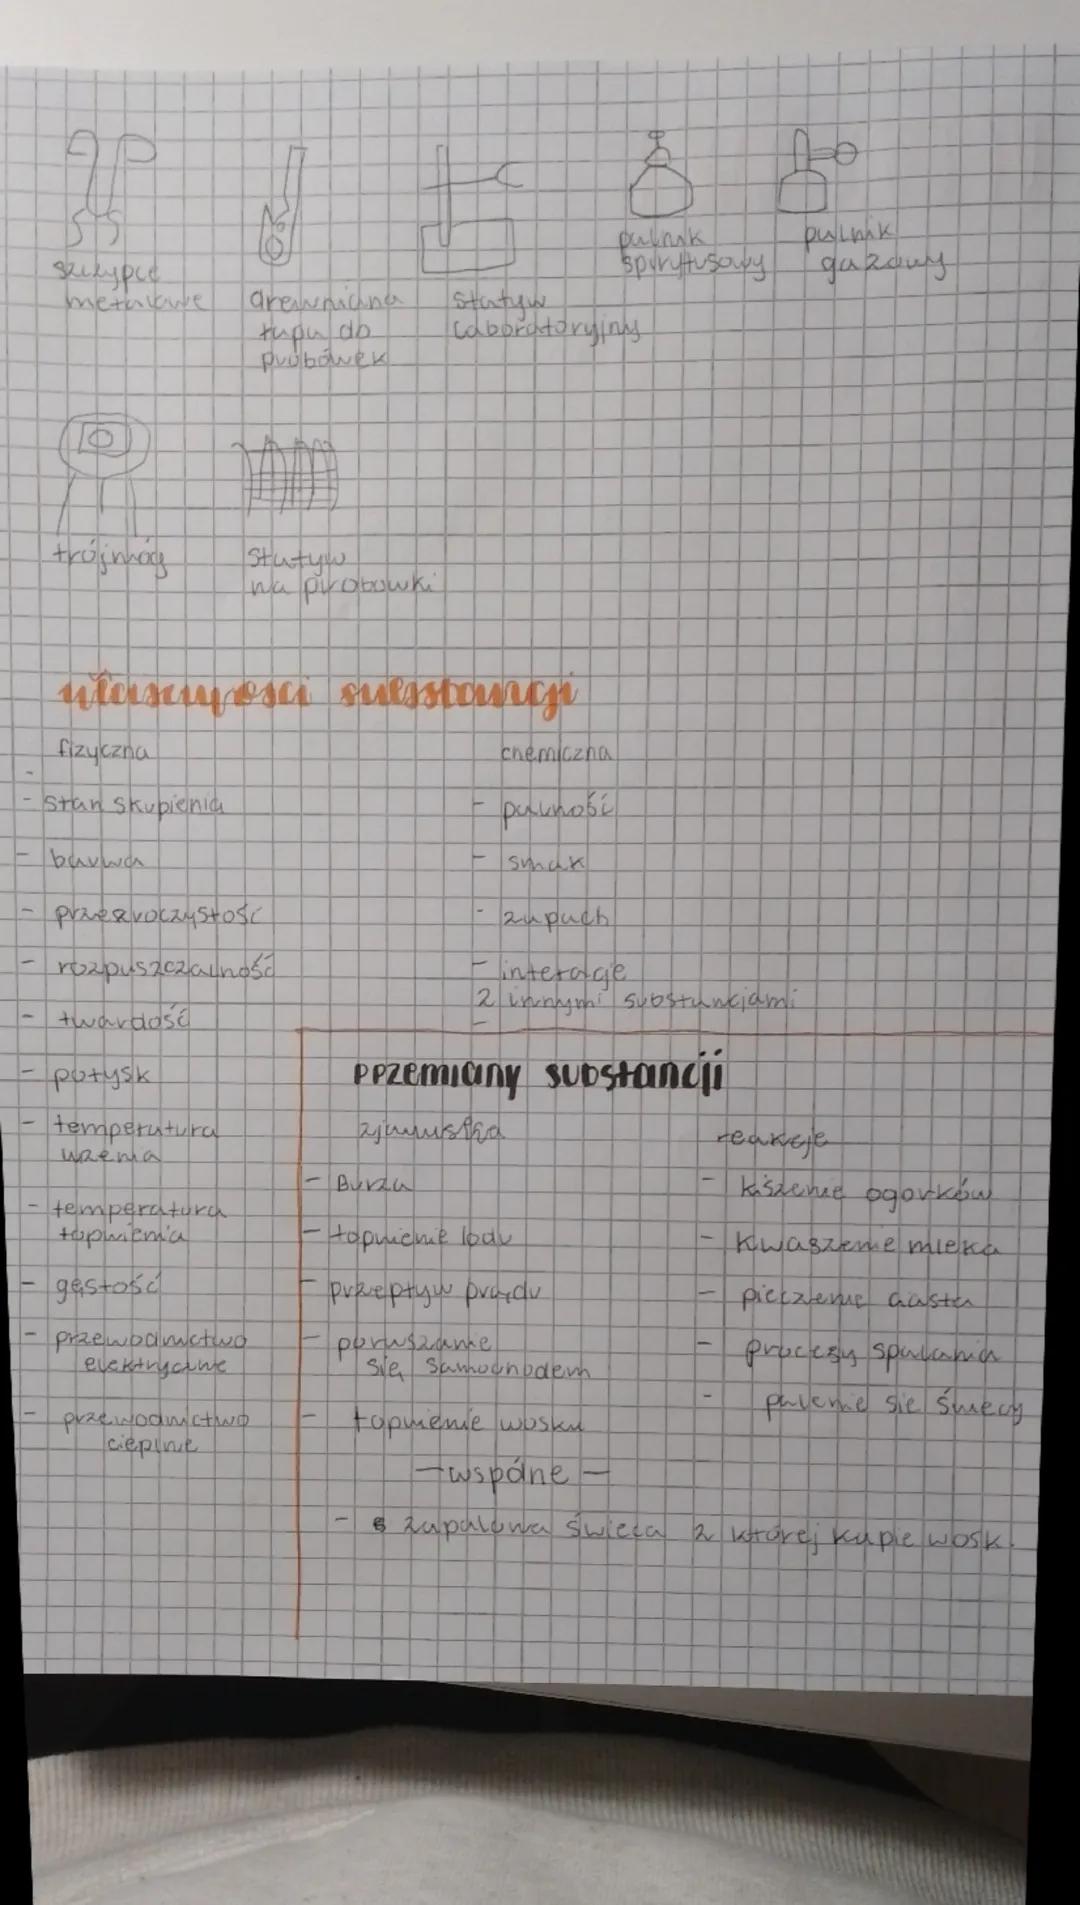 szczypce
metalowe
drewniana
łapa do
probówek
statyw
laboratoryjny
palnik
spirytusowy
palnik
gazowy
trójnóg
statyw
na probowki
właściwości substancji
fizyczna
chemiczna
-
- stan skupienia
- palność
- barwa
- smak
- przeźroczystość
- zapach
- rozpuszczalność
- interakcje
z innymi substancjami
- twardość
-
- połysk
- temperatura
wrzenia
- temperatura
topnienia
- gęstość
- przewodnictwo
elektryczne
- przewodnictwo
cieplne
przemiany substancji
zjawiska
reakcje
- Burza
- kiszenie ogorków
- topnienie lodu
- kwaszenie mleka
- przepływ prądu
- pieczenie ciasta
- poruszanie
się samochodem
- procesy spalania
- palenie sie świecy
- topnienie wosku
- wspólne -
- zapalowa świeca z której kapie wosk.